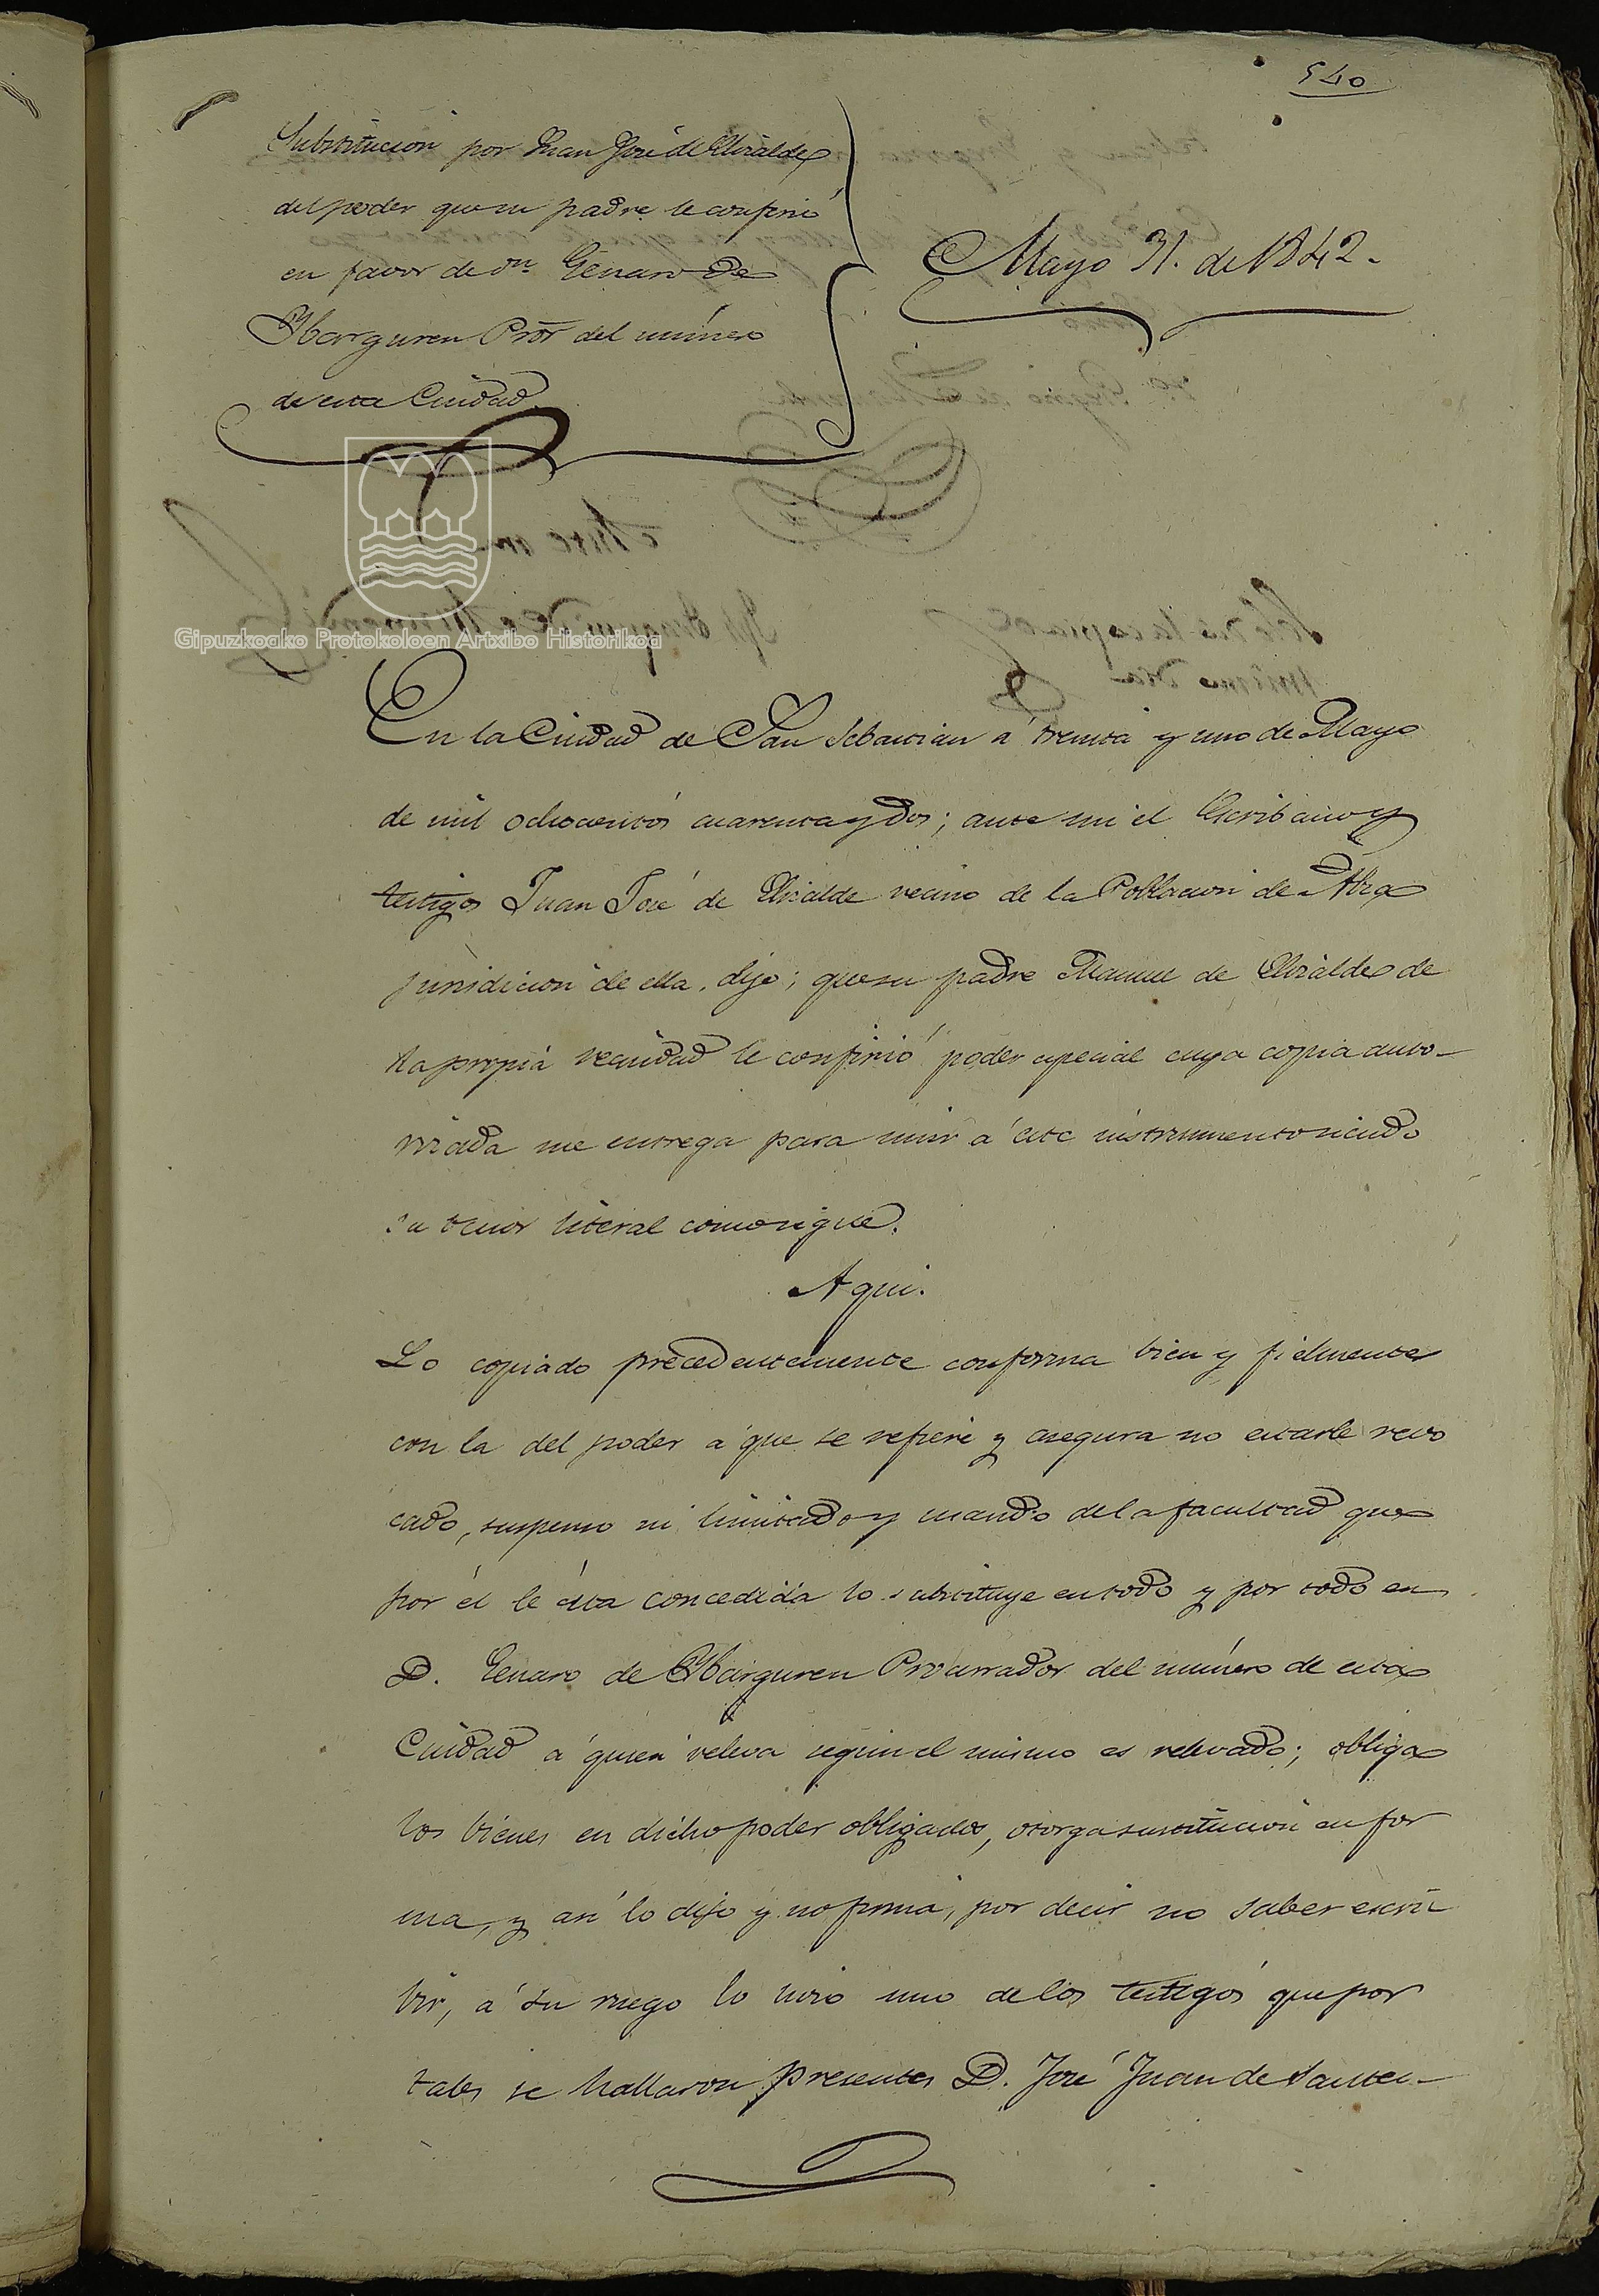 540
Substitucion por Juan José de Elizalde
del poder que su padre le confirió
en favor de Dn. Genaro de
Ybarguren Pror del número
de esta Ciudad
Mayo 31. de 1842.
Gipuzkoako Protokoloen Artxibo Historikoa
En la Ciudad de San Sebastian á treinta y uno de Mayo
de mil ochocientos cuarenta y dos; ante mi el Escribano y
testigos Juan José de Elizalde vecino de la Poblacion de Alza
jurisdicion de ella, dijo; que su padre Manuel de Elizalde de
la propia vecindad le confirió poder especial cuya copia auto-
rizada me entrega para unir á este instrumento siendo
su tenor literal como sigue.
Aqui.
Lo copiado precedentemente conforma bien y fielmente
con la del poder á que se refiere y asegura no estarle revo
cado, suspenso ni limitado y usando de la facultad que
por él le ésta concedida lo substituye en todo y por todo en
D. Genaro de Ybarguren Procurador del número de esta
Ciudad á quien releva segun el mismo es relevado; obliga
los bienes en dicho poder obligados, otorga sustitucion en for
ma, y asi lo dijo y no firmá, por decir no saber escri
bir, á su ruego lo hizo uno de los testigos que por
tales se hallaron presentes D. José Juan de Santes-